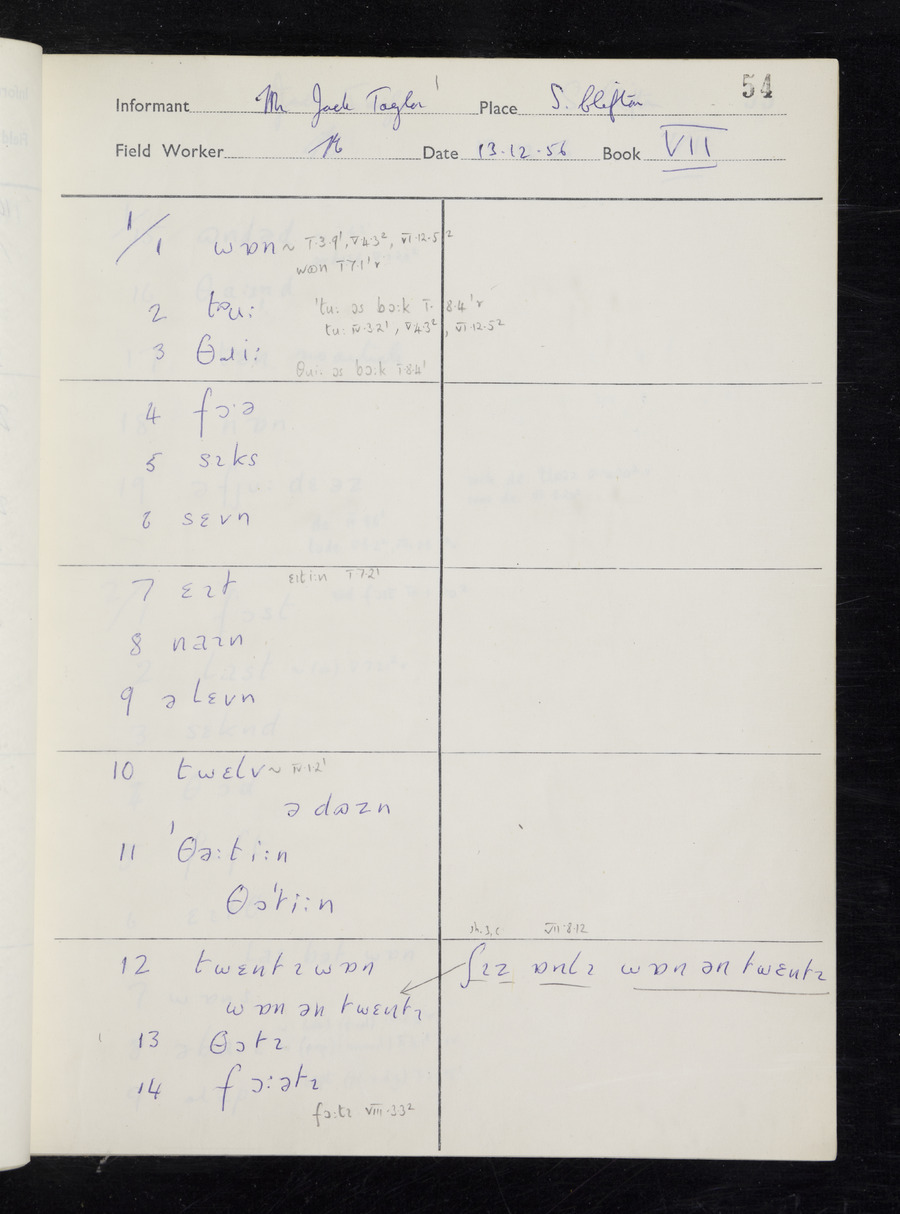 54
Informant Mr Jack Taylor¹ Place S. Clifton
Field Worker Date 13·12·56 Book VII
1/1 wɒn ~ I·3·9¹, V·4·3², VI·12·5²
wʊn I·7·1¹r
2 təu: 'tu: əs bɔ:k I·8·4¹r
tu: IV·3·2¹, V·4·3², VI·12·5²
3 θɹi:
θɹi: əs bɔ:k I·8·4¹
4 fɔ·ə
5 sɪks
6 sɛvn
7 ɛɪt ɛɪti:n I·7·2¹
8 naɪn
9 ə lɛvn
10 twɛlv ~ IV·1·2¹
ə dʊzn
11 'θə:ti:n
θə'ti:n
VII·8·12
12 twɛntɪ wɒn ʃɪz ɒnlɪ wɒn ən twɛntɪ
wɒn ən twɛntɪ
13 θɔtɪ
14 fɔ:ətɪ
fɔ:tɪ VIII·3·3²